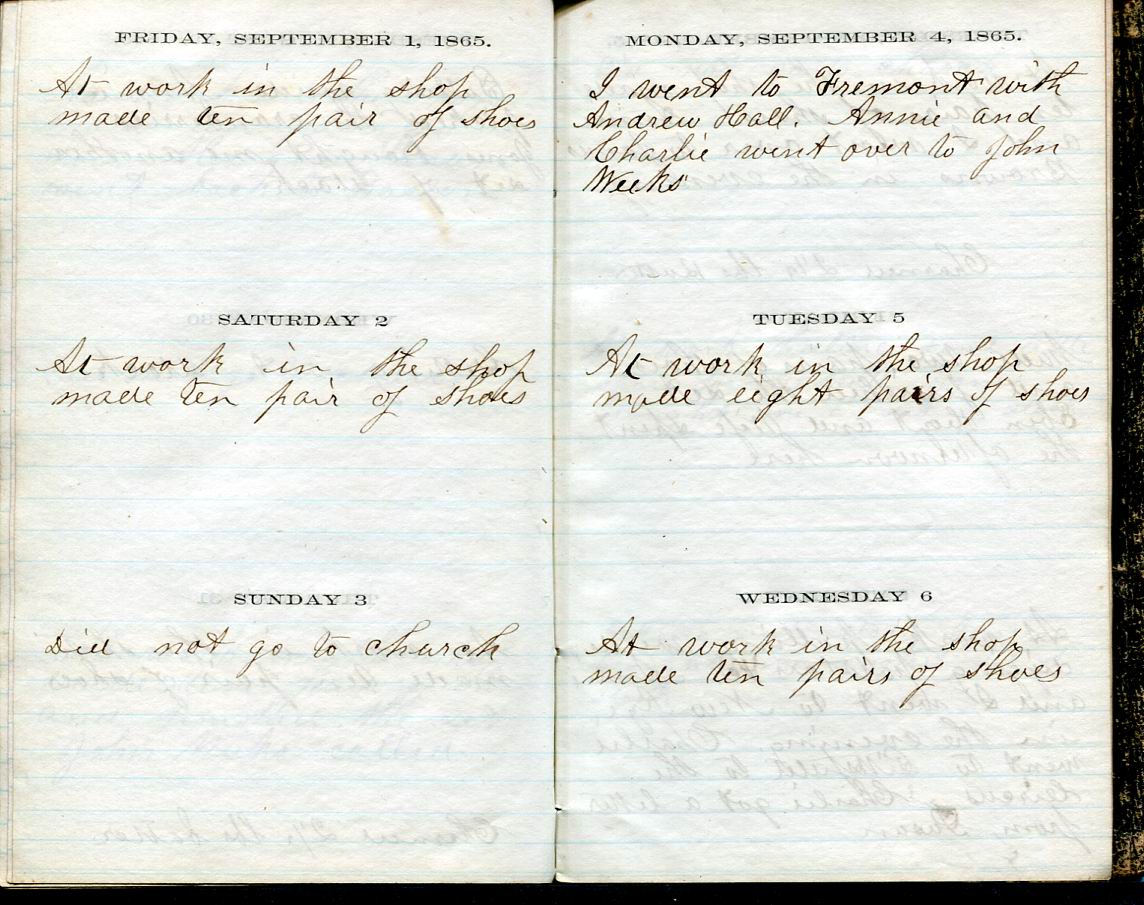 FRIDAY, SEPTEMBER 1, 1865.
At work in the shop
made ten pair of shoes
SATURDAY 2
At work in the shop
made ten pair of shoes
SUNDAY 3
Did not go to church
MONDAY, SEPTEMBER 4, 1865.
I went to Fremont with
Andrew Hall. Annie and
Charlie went over to John
Weeks
TUESDAY 5
At work in the shop
made eight pairs of shoes
WEDNESDAY 6
At work in the shop
made ten pairs of shoes